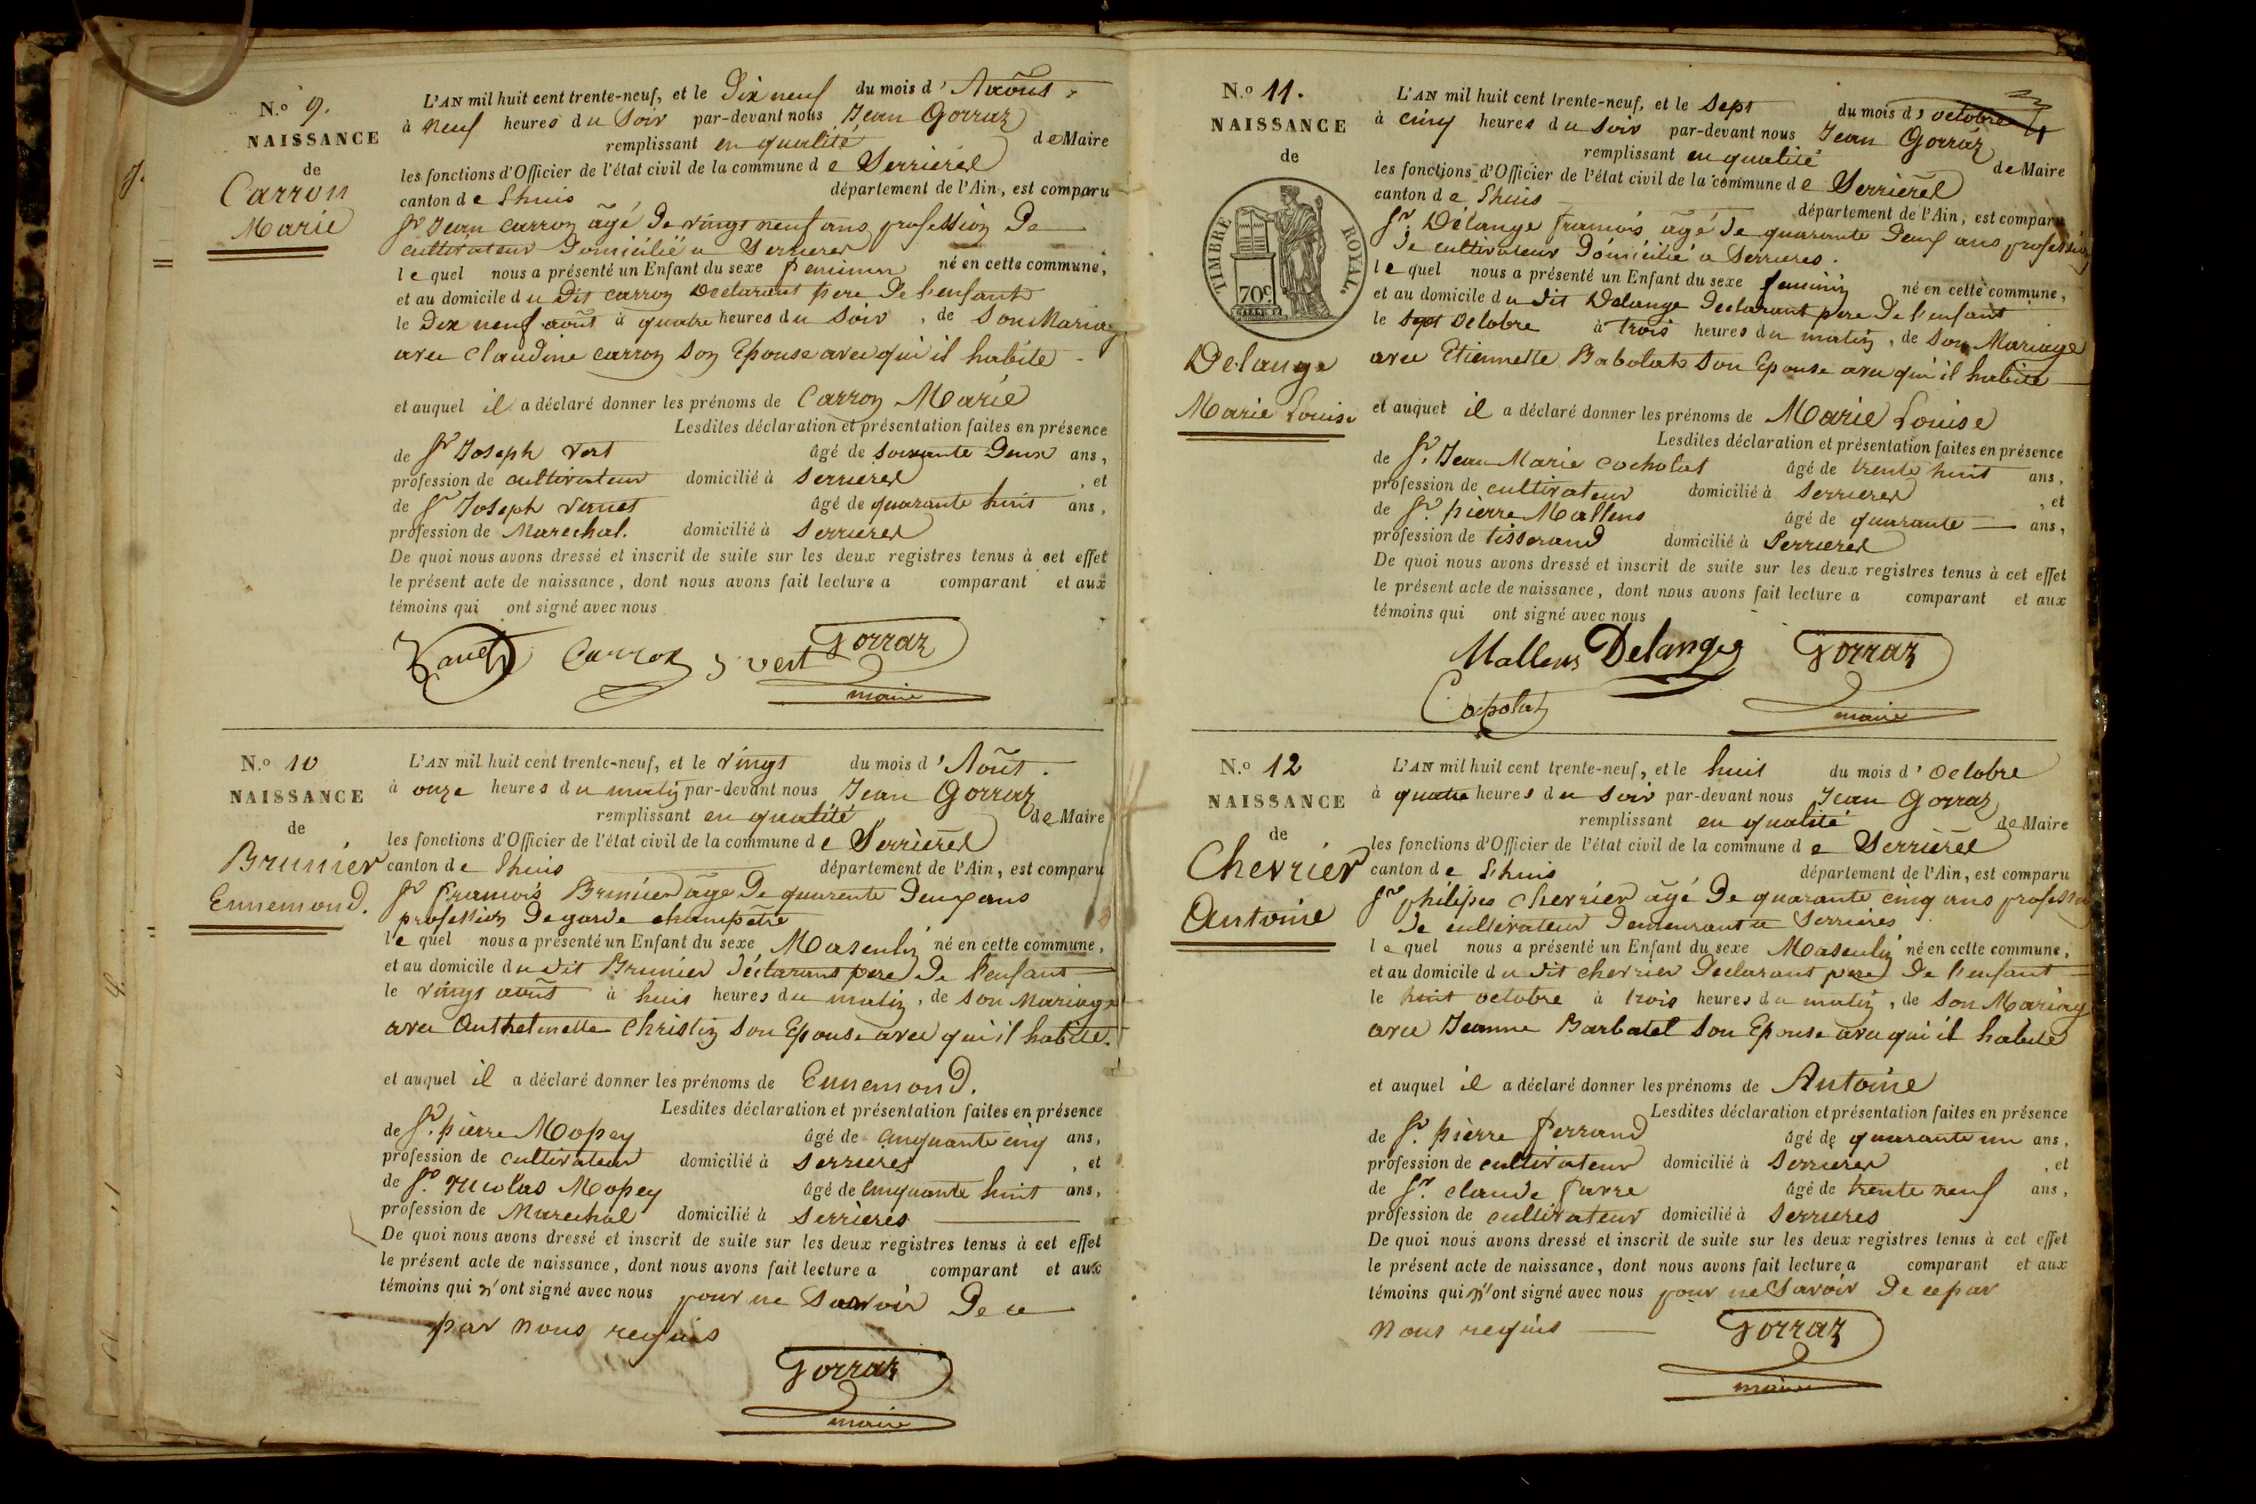 N.o 9.
NAISSANCE
de
Carron
Marie
L'AN mil huit cent trente-neuf, et le Dix neuf du mois d' Aoûst
à neuf heures du Soir par-devant nous Jean Gorraz
remplissant en qualité de Maire
les fonctions d'Officier de l'état civil de la commune de Serrieres
canton de Lhuis département de l'Ain, est comparu
Sr Jean Carron agé de vingt neuf ans profession De
cultivateur domicilié a Serrieres
lequel nous a présenté un Enfant du sexe feminin né en cette commune,
et au domicile du dit Carron Declarant pere De l'enfant
le Dix neuf août à quatre heures du Soir, de Son Mariage
avec Claudine Carron Son Epouse avec qui il habite
et auquel il a déclaré donner les prénoms de Carron Marie
Lesdites déclaration et présentation faites en présence
de Sr Joseph Vert âgé de soixante Deux ans,
profession de cultivateur domicilié à Serrieres, et
de Sr Joseph Vanet âgé de quarante huit ans,
profession de Marechal. domicilié à Serrieres
De quoi nous avons dressé et inscrit de suite sur les deux registres tenus à cet effet
le présent acte de naissance, dont nous avons fait lecture a comparant et aux
témoins qui ont signé avec nous
Vanet Carron J vert Gorraz
maire
N.o 10
NAISSANCE
de
Brunier
Ennemond.
L'AN mil huit cent trente-neuf, et le vingt du mois d' Août.
à onze heures du matin par-devant nous Jean Gorraz
remplissant en qualité de Maire
les fonctions d'Officier de l'état civil de la commune de Serrieres
canton de Lhuis département de l'Ain, est comparu
Sr François Brunier age De quarente Deux ans
profession De garde champetre
lequel nous a présenté un Enfant du sexe Masculin né en cette commune,
et au domicile du dit Brunier Déclarant pere De l'enfant
le vingt août à huit heures du matin, de Son Mariage
avec Christin Son Epouse avec qui il habite.
et auquel il a déclaré donner les prénoms de Ennemond.
Lesdites déclaration et présentation faites en présence
de Sr. pierre Mopey âgé de cinquante cinq ans,
profession de cultivateur domicilié à Serrieres, et
de Sr. Nicolas Mopey âgé de cinquante huit ans,
profession de Marechal domicilié à Serrieres
De quoi nous avons dressé et inscrit de suite sur les deux registres tenus à cet effet
le présent acte de naissance, dont nous avons fait lecture a comparant et aux
témoins qui n'ont signé avec nous pour ne Savoir De ce
par nous requis
Gorraz
maire
N.o 11.
NAISSANCE
de
TIMBRE ROYAL.
70c
Delange
Marie Louise
L'AN mil huit cent trente-neuf, et le Sept du mois d' octobre
à cinq heures du Soir par-devant nous Jean Gorraz
remplissant en qualité de Maire
les fonctions d'Officier de l'état civil de la commune de Serrieres
canton de Lhuis département de l'Ain, est comparu
Sr. Delange francois agé de quarante Deux ans profession
De cultivateur Domicilié a Serrieres.
lequel nous a présenté un Enfant du sexe feminin né en cette commune,
et au domicile du dit Delange Declarant pere De l'enfant
le Sept Octobre à trois heures du matin, de Son Mariage
avec Etiennette Babolat Son Epouse avec qui il habite
et auquel il a déclaré donner les prénoms de Marie Louise
Lesdites déclaration et présentation faites en présence
de Sr. Jean Marie Cocholat âgé de trente huit ans,
profession de cultivateur domicilié à Serrieres, et
de Sr. pierre Mallens âgé de quarante ans,
profession de tisserand domicilié à Serrieres
De quoi nous avons dressé et inscrit de suite sur les deux registres tenus à cet effet
le présent acte de naissance, dont nous avons fait lecture a comparant et aux
témoins qui ont signé avec nous
Mallens Delange Gorraz
Cocholat maire
N.o 12
NAISSANCE
de
Chevrier
Antoine
L'AN mil huit cent trente-neuf, et le huit du mois d' Octobre
à quatre heures du Soir par-devant nous Jean Gorraz
remplissant en qualité de Maire
les fonctions d'Officier de l'état civil de la commune de Serrieres
canton de Lhuis département de l'Ain, est comparu
Sr philipes Chevrier agé De quarante cinq ans profession
De cultivateur Demeurant a Serrieres
lequel nous a présenté un Enfant du sexe Masculin né en cette commune,
et au domicile du dit Chevrier Declarant pere De l'enfant
le huit octobre à trois heures du matin, de Son Mariage
avec Jeanne Barbatel Son Epouse avec qui il habite
et auquel il a déclaré donner les prénoms de Antoine
Lesdites déclaration et présentation faites en présence
de Sr. pierre ferrand âgé de quarante un ans,
profession de cultivateur domicilié à Serrieres, et
de Sr. Claude favre âgé de trente neuf ans,
profession de cultivateur domicilié à Serrieres
De quoi nous avons dressé et inscrit de suite sur les deux registres tenus à cet effet
le présent acte de naissance, dont nous avons fait lecture a comparant et aux
témoins qui n'ont signé avec nous pour ne Savoir De ce par
nous requis Gorraz
maire